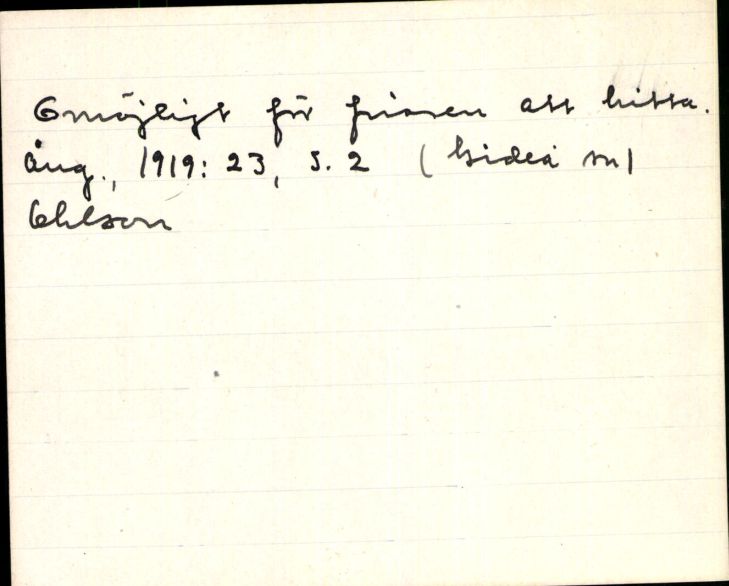 Omöjligt för frissen att hitta.
Ång., 1919: 23, s. 2 (Gideå sn)
Ohlson